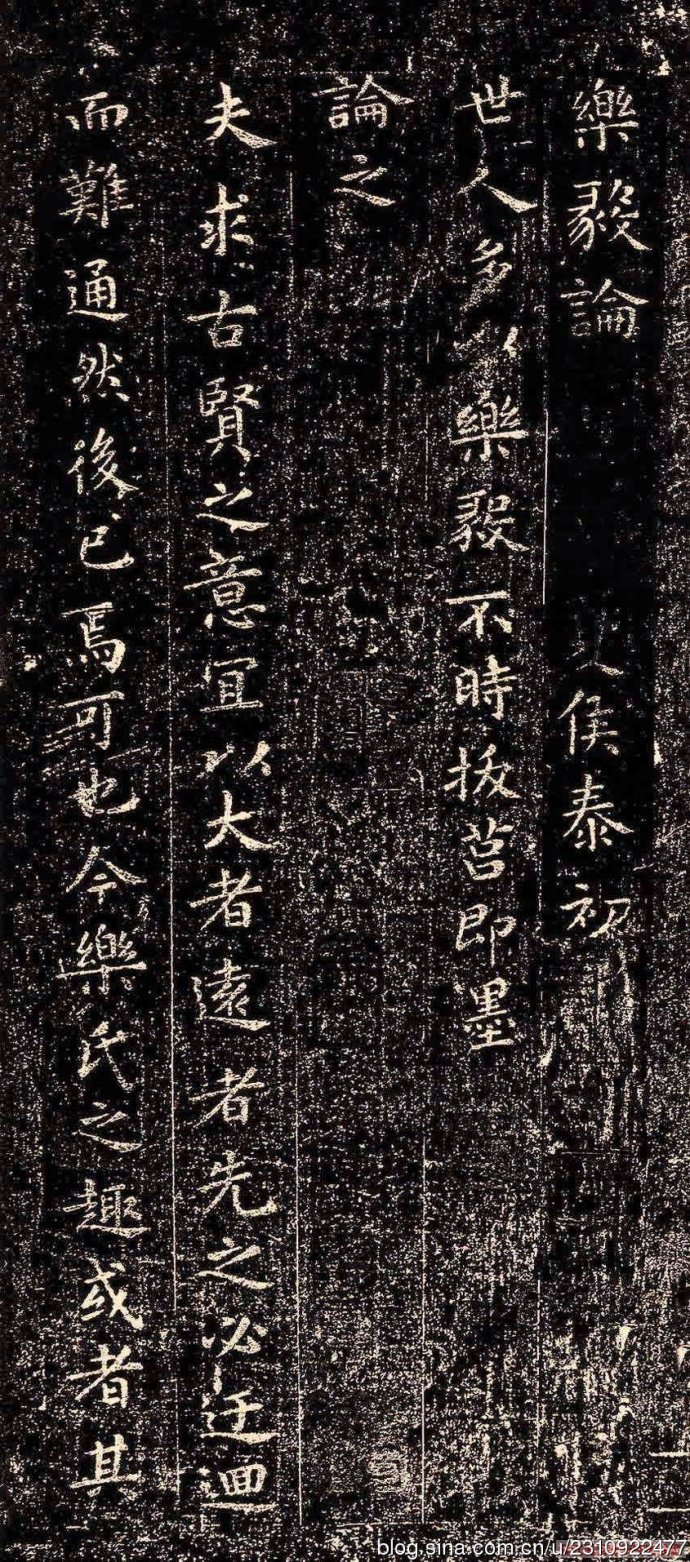 樂毅論 侯泰初
世人多以樂毅不時拔莒即墨
論之
夫求古賢之意宜以大者遠者先之必迂迴
而難通然後已焉可也今樂氏之趣或者其
blog.sina.com.cn/u/2310922477